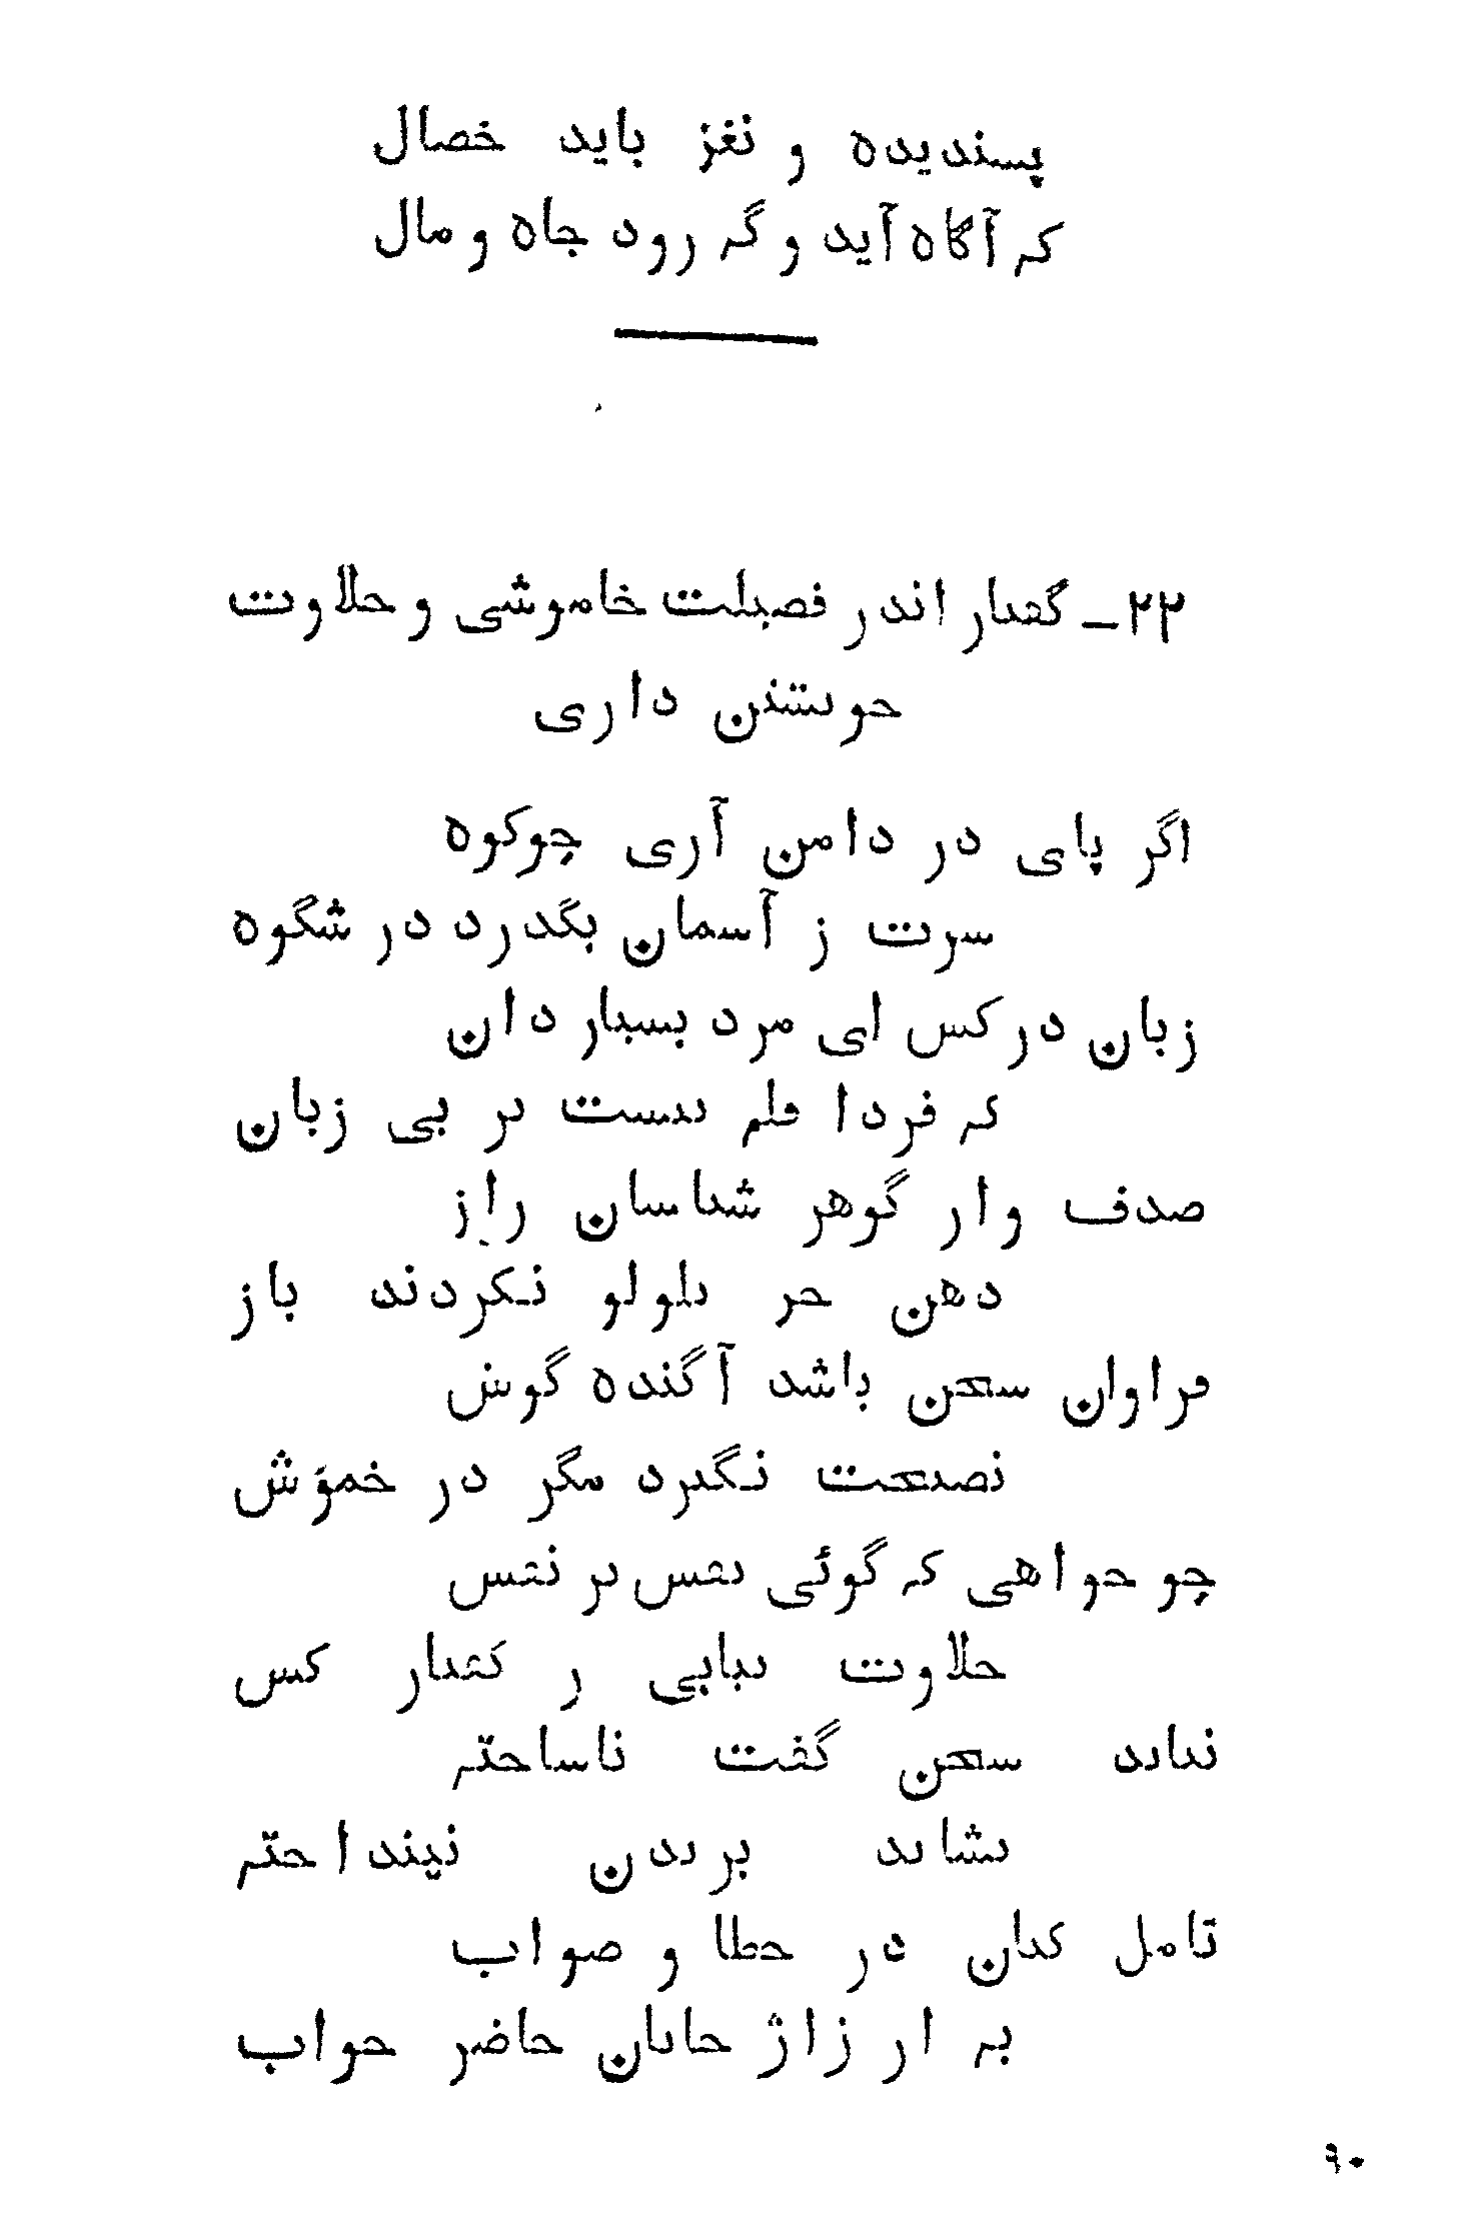 پسندیده و نغز باید خصال
که آگاه آید و گه رود جاه و مال
۲۲ـ گفتار اندر فضیلت خاموشی و حلاوت
خویشتن داری
اگر پای در دامن آری چو کوه
سرت ز آسمان بگذرد در شکوه
زبان درکش ای مرد بسیار دان
که فردا قلم نیست بر بی زبان
صدف وار گوهر شناسان راز
دهن جز بلولو نکردند باز
فراوان سخن باشد آگنده گوش
نصیحت نگیرد مگر در خموش
چو خواهی که گوئی نفس بر نفس
حلاوت نیابی ز گفتار کس
نباید سخن گفت ناساخته
نشاید بریدن نینداخته
تامل کنان در خطا و صواب
به از ژاژ خایان حاضر جواب
۹۰